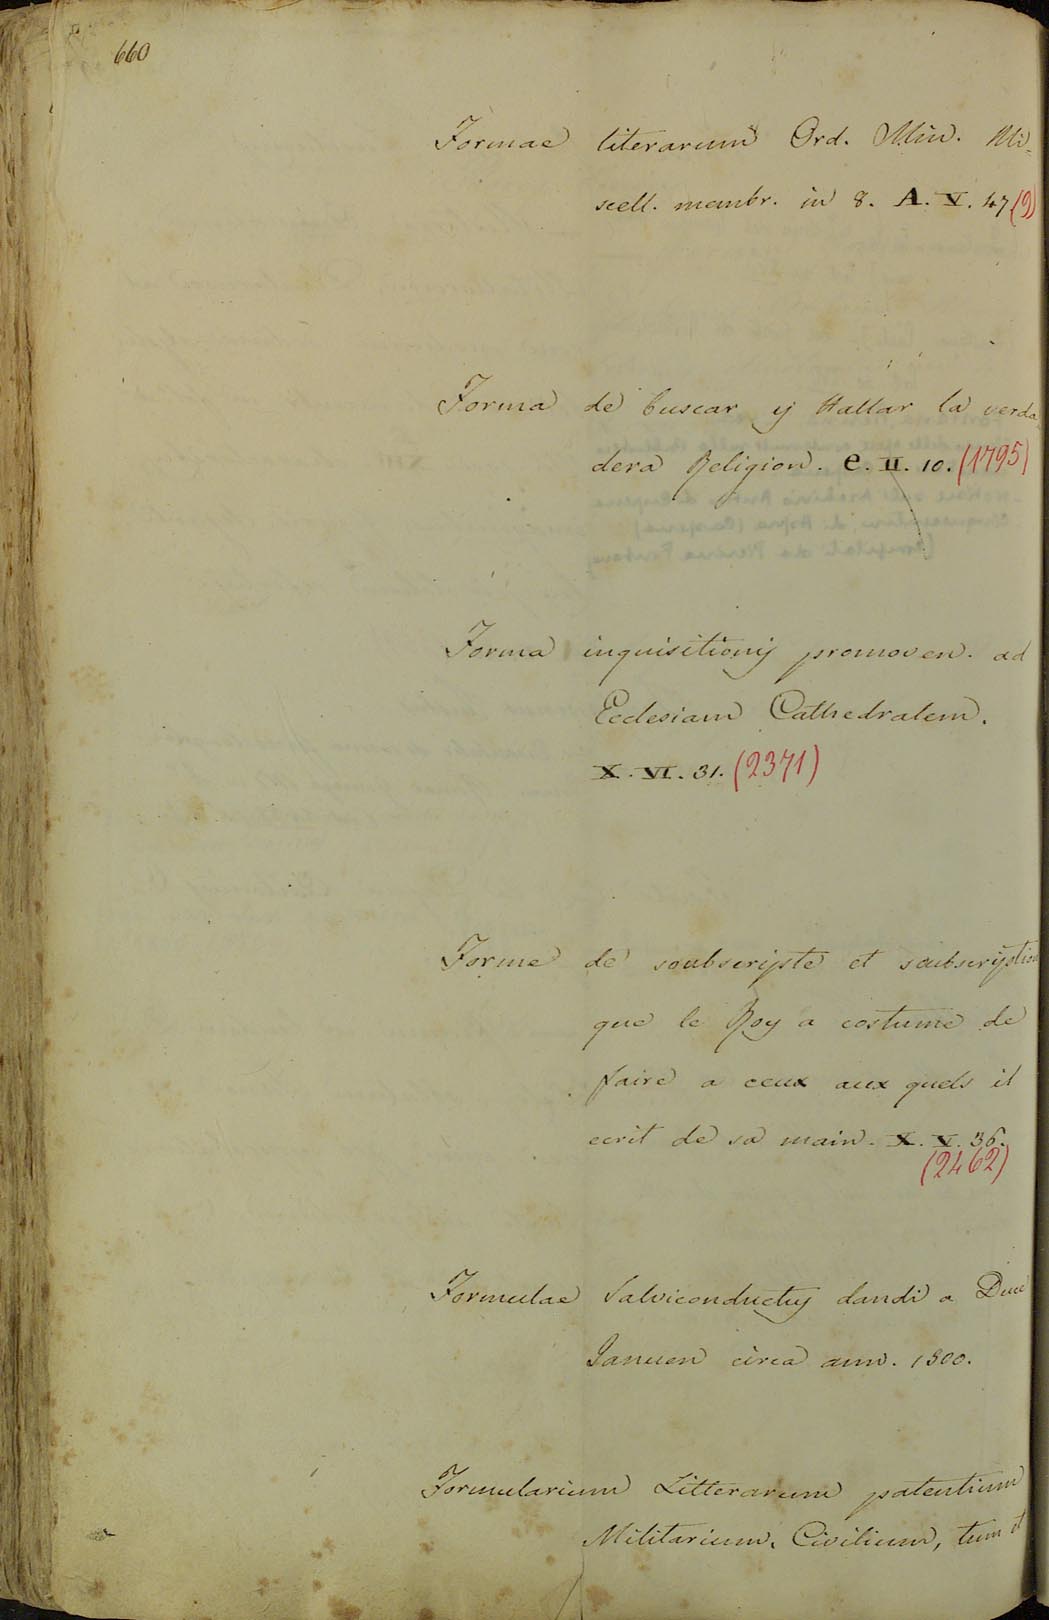 660
Formae literarum Ord. Min. Mi=
scell. manbr. in 8. A. V. 47 (9)
Forma de buscar y Hallar la verda=
dera Religion. e. II. 10. (1795)
Forma inquisitionij promoven. ad
Ecclesiam Cathedralem.
X. VI. 31. (2371)
Forme de soubscripte et soubscription
que le Roy a costume de
faire a ceux aux quels il
ecrit de sa main. X. V. 36.
(2462)
Formulae Salviconductij dandi a Duce
Januen circa ann. 1300.
Formularium Litterarum patentium
Militarium, Civilium, tum et